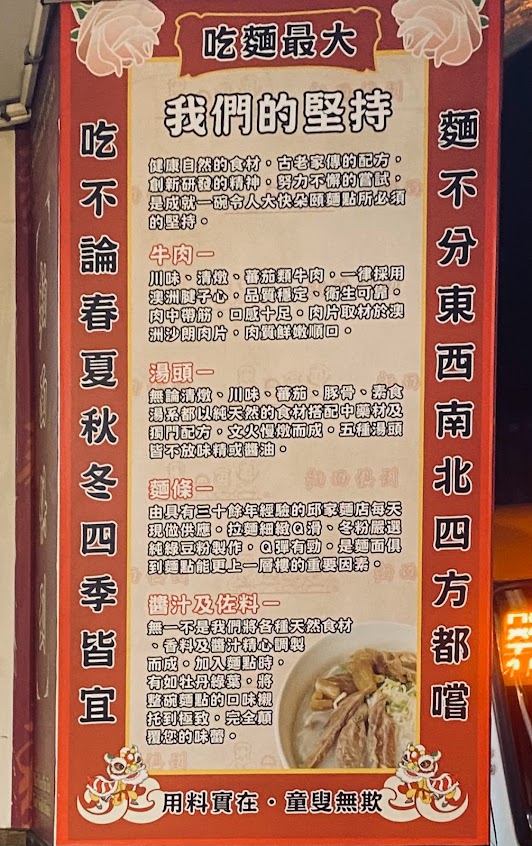 吃麵最大
麵不分東西南北四方都嚐
吃不論春夏秋冬四季皆宜
我們的堅持
健康自然的食材，古老家傳的配方，
創新研發的精神，努力不懈的嘗試，
是成就一碗令人大快朵頤麵點所必須
的堅持。
牛肉－
川味、清燉、蕃茄類牛肉，一律採用
澳洲腱子心，品質穩定、衛生可靠。
肉中帶筋，口感十足。肉片取材於澳
洲沙朗肉片，肉質鮮嫩順口。
湯頭－
無論清燉、川味、蕃茄、豚骨、素食
湯系都以純天然的食材搭配中藥材及
獨門配方，文火慢燉而成。五種湯頭
皆不放味精或醬油。
麵條－
由具有三十餘年經驗的邱家麵店每天
現做供應。拉麵細緻Q滑、冬粉嚴選
純綠豆粉製作，Q彈有勁。是麵面俱
到麵點能更上一層樓的重要因素。
醬汁及佐料－
無一不是我們將各種天然食材
、香料及醬汁精心調製
而成。加入麵點時，
有如牡丹綠葉，將
整碗麵點的口味襯
托到極致，完全顛
覆您的味蕾。
用料實在。童叟無欺